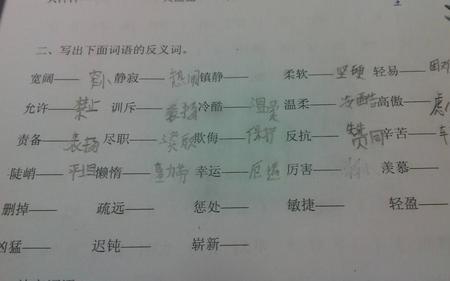 二、写出下面词语的反义词。
宽阔—— 窄小 静寂—— 热闹 镇静—— 柔软—— 坚硬 轻易—— 困难
允许—— 禁止 训斥—— 表扬 冷酷—— 温柔—— 冷酷 高傲——
责备—— 表扬 尽职—— 欺侮—— 保护 反抗—— 赞同 辛苦——
陡峭—— 平坦 懒惰—— 幸运—— 厄运 厉害—— 羡慕——
删掉—— 疏远—— 惩处—— 敏捷—— 轻盈——
凶猛—— 迟钝—— 崭新——